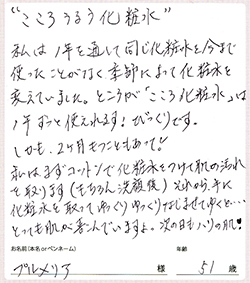 "こころうるう化粧水"
私は1年を通して同じ化粧水を今まで
使ったことがなく季節によって化粧水を
変えていました。ところが「こころ化粧水」は
1年ずっと使えれます!びっくりです。
しかも、2ヶ月もつこともあって!
私はまずコットンで化粧水をつけて肌の汚れ
を取ります(もちろん洗顔後)それから、手に
化粧水を取ってゆっくりゆっくりなじませてゆくと…
とても肌が喜んでいますよ。次の日もハリの肌!
お名前(本名orペンネーム) 年齢
プルメリア 様 51 歳